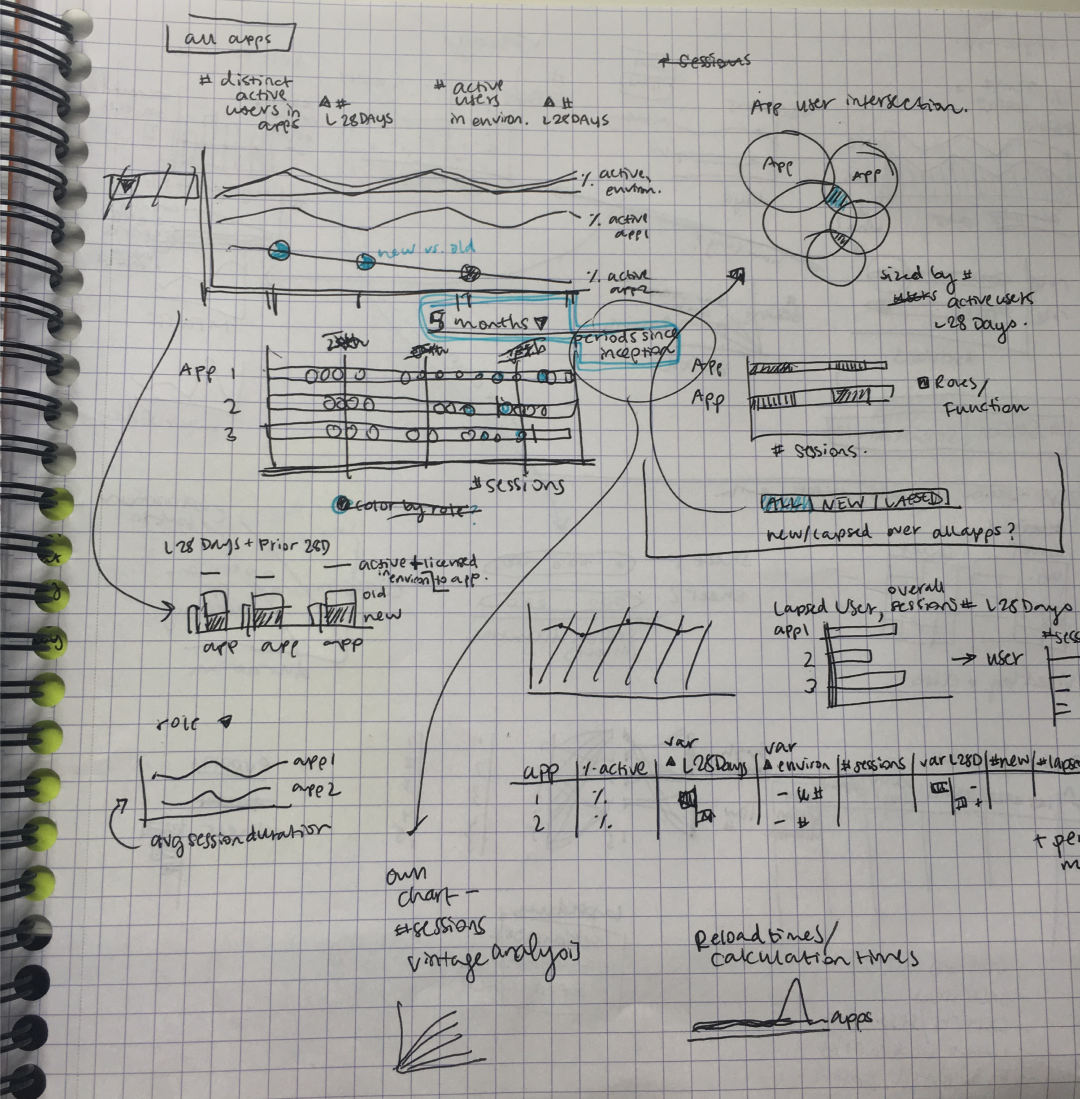 all apps
# sessions
# distinct
active
users in
apps
Δ #
L28DAYS
# active
users
in environ.
Δ #
L28DAYS
App user intersection.
App
App
% active,
environ.
% active
app1
new vs. old
% active
app2
sized by #
users active users
L28 Days.
5 months ▼
periods since
inception
25th
75th
App 1
2
3
# sessions
color by role?
App
App
Roles/
Function
# sessions.
ALL NEW LAPSED
new/lapsed over all apps?
L28 Days + Prior 28D
active + licensed
in environ to app.
old
new
app app app
Lapsed User, overall
sessions # L28Days
app1
2
3
→ user
#sess
role ▼
app1
app2
avg session duration
app | % active | var Δ L28Days | var Δ environ | # sessions | var L28D | #new | #lapse
1 % - #
2 % - #
- +
+ per
m
own
chart –
#sessions
vintage analysis
Reload times/
calculation times
apps